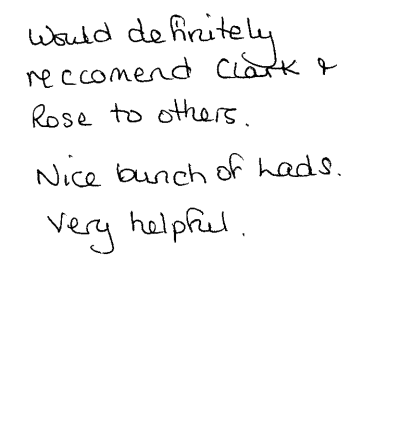 Would definitely
reccomend Clark &
Rose to others.
Nice bunch of lads.
Very helpful.